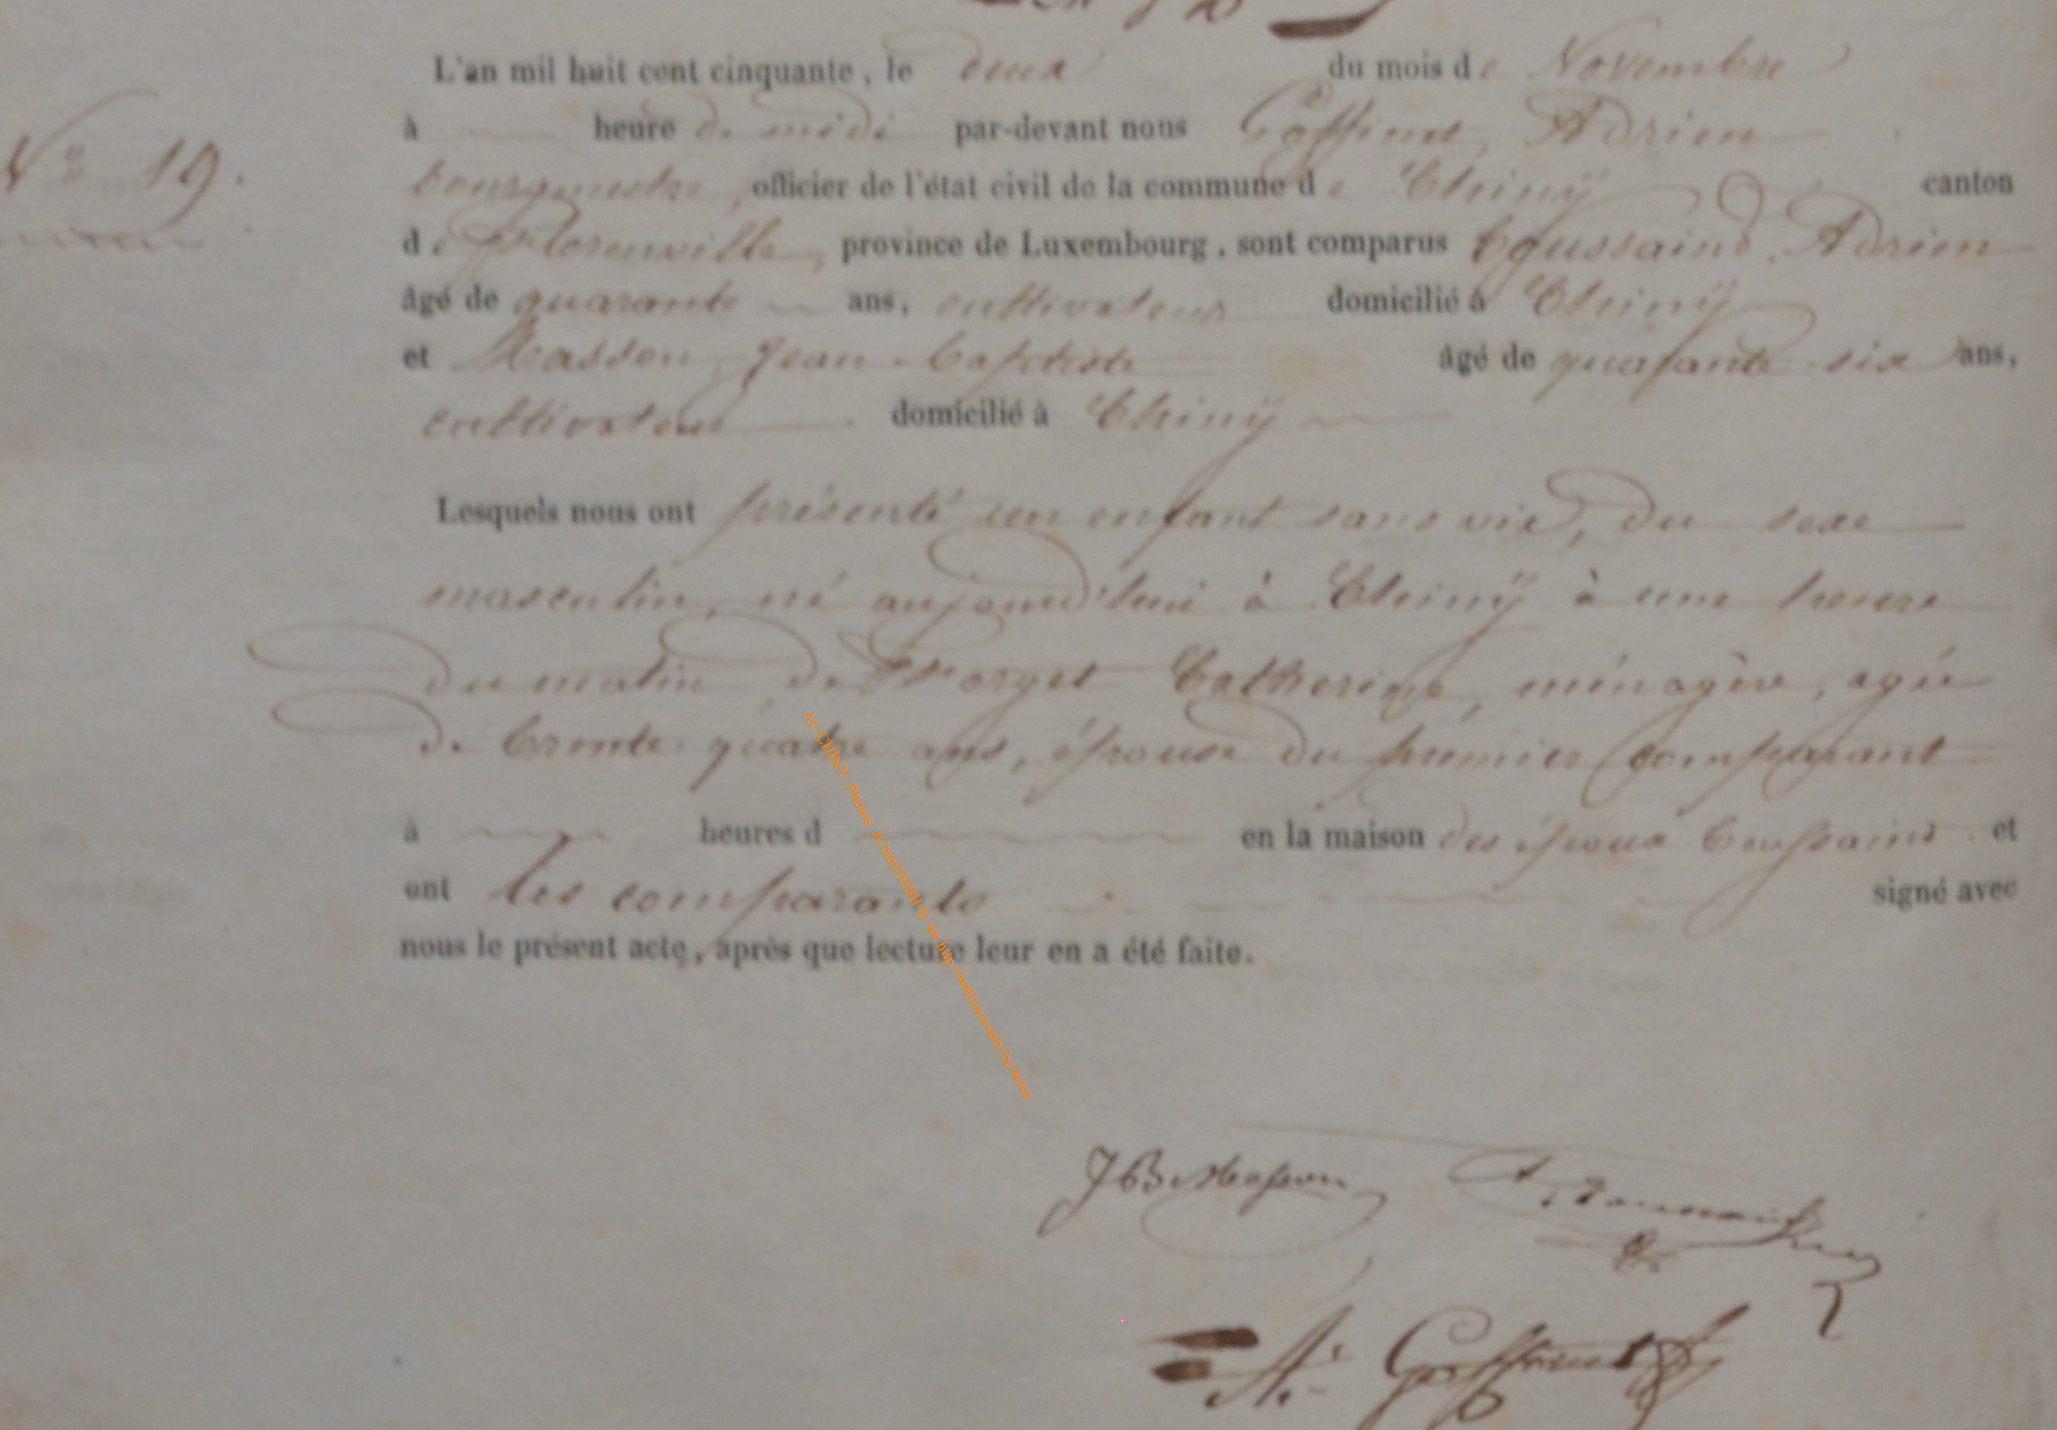 L'an mil huit cent cinquante, le deux du mois de Novembre
à heure de midi par-devant nous Goffinet, Adrien
N° 19.
bourgmestre, officier de l'état civil de la commune de Chiny canton
de Florenville, province de Luxembourg, sont comparus Toussaint, Adrien
âgé de quarante ans, cultivateur domicilié à Chiny
et Masson, Jean-baptiste âgé de quarante six ans,
cultivateur domicilié à Chiny
Lesquels nous ont présenté un enfant sans vie, du sexe
masculin, né aujourd'hui à Chiny à une heure
du matin de Forget Catherine, ménagère, agée
de trente quatre ans, épouse du premier comparant
à heures d en la maison des époux Toussaint et
ont les comparants signé avec
nous le présent acte, après que lecture leur en a été faite.
AC CHINY - Photos:
JB Masson A. Toussaint
A. Goffinet